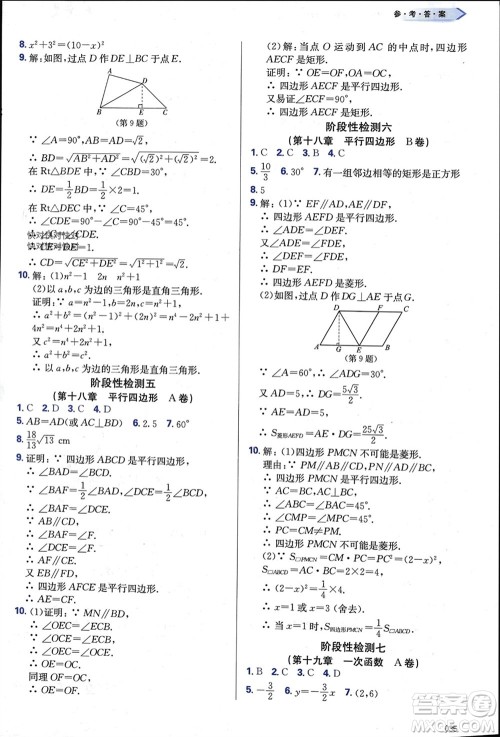 参·考·答·案
8. x²+3²=(10-x)²
9. 解:如图,过点 D 作 DE⊥BC 于点 E.
A
D
B
E
C
(第 9 题)
∵ ∠A=90°,AB=AD=√2,
∴ BD=√(AB²+AD²)=√(2+2)=2.
在 Rt△BDE 中,∠DBC=30°,
∴ DE=1/2 BD=1/2×2=1.
在 Rt△CDE 中,∠C=45°,
∴ ∠CDE=90°-45°=45°.
∴ ∠C=∠CDE.
∴ CE=DE=1.
∴ CD=√(CE²+DE²)=√(1²+1²)=√2.
10. 解:(1)n²-1 2n n²+1
(2)以 a,b,c 为边的三角形是直角三角形.
证明:∵ a=n²-1,b=2n,c=n²+1,
∴ a²+b²=(n²-1)²+(2n)²
=n⁴-2n²+1+4n²
=n⁴+2n²+1.
又 c²=(n²+1)²
=n⁴+2n²+1,
∴ a²+b²=c².
∴ 以 a,b,c 为边的三角形是直角三角形.
阶段性检测五
(第十八章 平行四边形 A卷)
1. C 2. D 3. C 4. D
5. AB=AD(或AC⊥BD) 6. 2.5 7. 60°
8. 18/13 √13 cm
9. 证明:∵ 四边形 ABCD 是平行四边形,
∴ ∠BAD=∠BCD.
∴ ∠BAF=1/2∠BAD=1/2∠BCD.
∴ ∠BAF=∠DCE.
∵ AB∥CD,
∴ ∠BAF=∠AFD.
∴ ∠AFD=∠DCE.
∴ AF∥CE.
∴ 四边形 AFCE 是平行四边形.
∴ AE=CF.
10. (1)证明:∵ MN∥BD,
∴ ∠OEC=∠ECB.
∵ ∠OCE=∠ECB,
∴ ∠OEC=∠OCE.
∴ OE=OC.
同理 OF=OC.
∴ OE=OF.
(2)解:当点 O 运动到 AC 的中点时,四边形
AECF 是矩形.
证明:∵ OE=OF,OA=OC,
∴ 四边形 AECF 是平行四边形.
又易证∠ECF=90°,
∴ 四边形 AECF 是矩形.
阶段性检测六
(第十八章 平行四边形 B卷)
1. C 2. C 3. B 4. D
5. 3/2 6. 30° 7. 有一组邻边相等的矩形是正方形
8. 5
9. 解:(1)证明:∵ EF∥AD,DF∥AE,
∴ 四边形 AEFD 是平行四边形.
又∵ ∠DAE=60°,∠AED=60°,
∴ ∠ADE=60°.
∴ AD=AE.
∴ 四边形 AEFD 是菱形.
(2)如图,过点 D 作 DG⊥AE 于点 G.
A
G
E
(第 9 题)
∵ ∠A=60°,
又∵ AD=5,
∴ DG=√3/2 AD=5√3/2.
∵ AD=5,
∴ S菱形AEFD=AE·DG=25√3/2.
10. 解:(1)四边形 PMCN 不可能是菱形.
理由:∵ PM∥AB∥CD,PN∥AD∥BC,
∴ 四边形 PMCN 是平行四边形.
∴ ∠CPM=∠PCN≠45°.
∵ ∠PCM=∠BAC=45°.
∴ PC=CM≠PM.
∴ 四边形 PMCN 不可能是菱形.
(2)∵ S▱PMCN : S▱ABCD=1/4,
∴ (2-x)·x=1/4×4.
∴ x=1 或 x=3(舍去).
∴ 当 x=1 时,S四边形PMCN=1/4 S▱ABCD.
阶段性检测七
(第十九章 一次函数 A卷)
1. B 2. C 3. D 4. D
5. -3/2 6. y=-3/2x 7. (2,6)